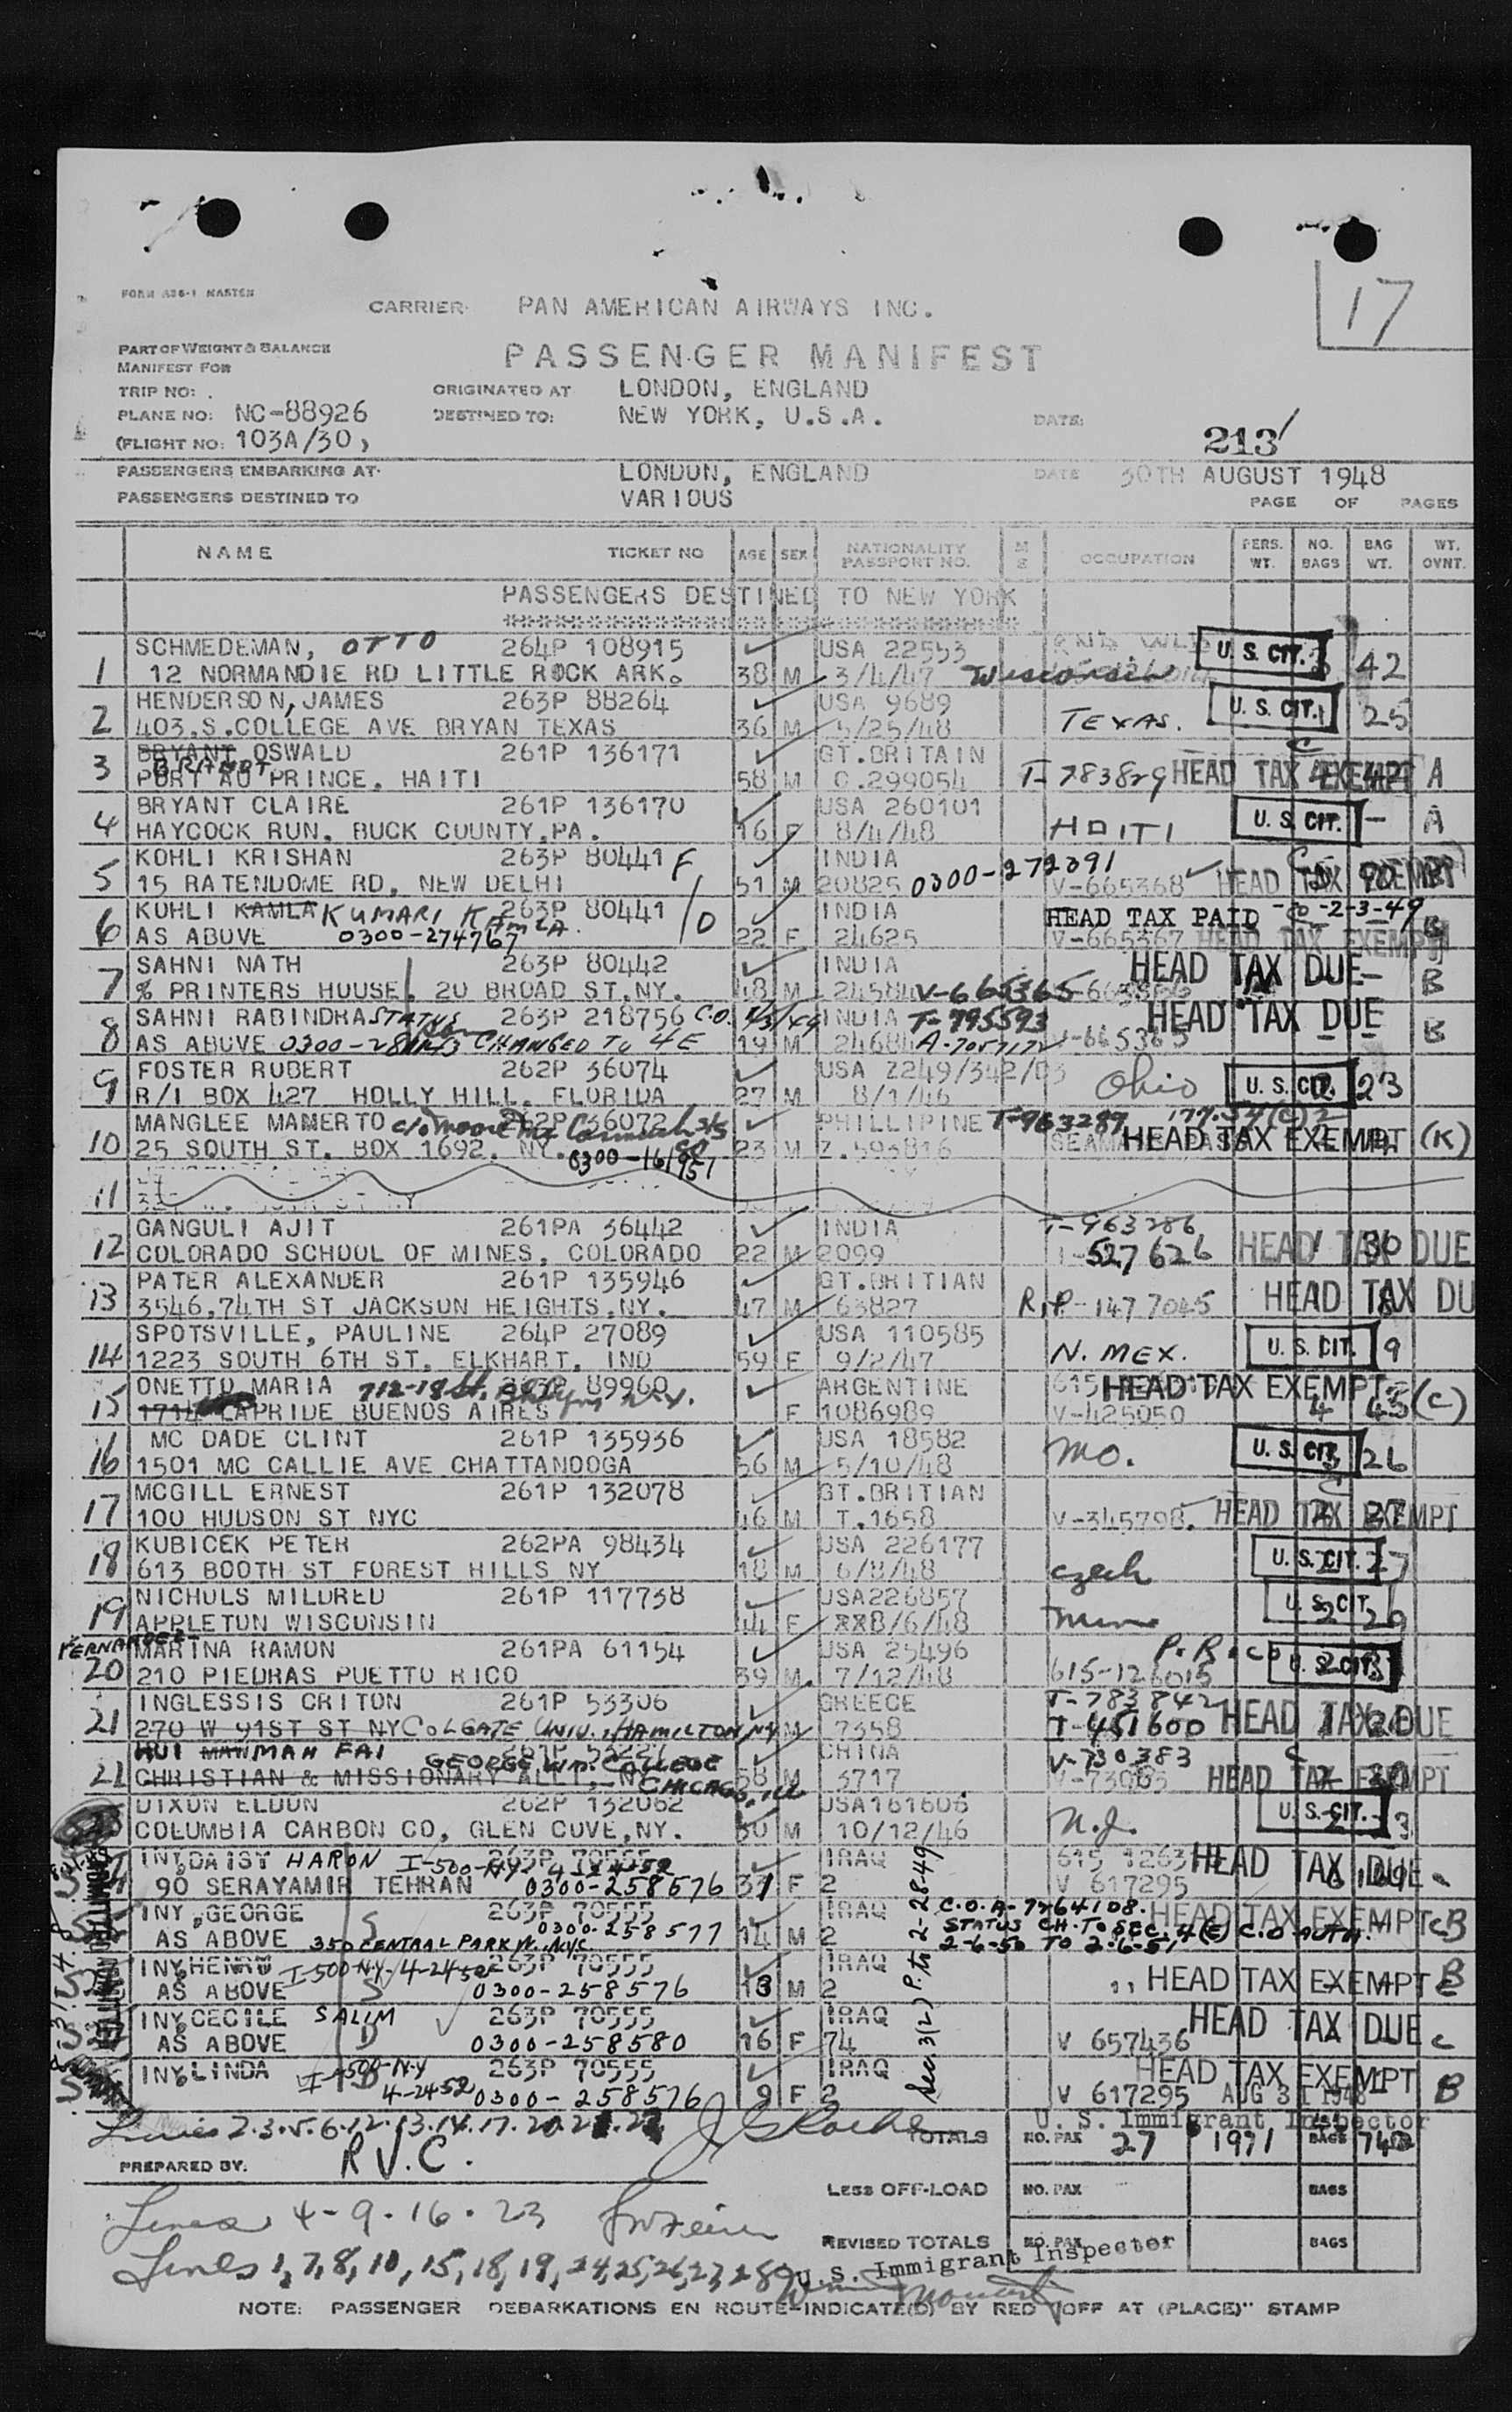 17
FORM 436-1 MASTER
CARRIER PAN AMERICAN AIRWAYS INC.
PART OF WEIGHT & BALANCE
MANIFEST FOR
PASSENGER MANIFEST
TRIP NO:
ORIGINATED AT LONDON, ENGLAND
PLANE NO: NC-88926 DESTINED TO: NEW YORK, U.S.A. DATE:
(FLIGHT NO: 103A/30) 213
PASSENGERS EMBARKING AT LONDON, ENGLAND DATE 30TH AUGUST 1948
PASSENGERS DESTINED TO VARIOUS PAGE OF PAGES
NAME TICKET NO AGE SEX NATIONALITY PASSPORT NO. M S OCCUPATION PERS. WT. NO. BAGS BAG WT. WT. OVNT.
PASSENGERS DESTINED TO NEW YORK
SCHMEDEMAN, OTTO 264P 108915 USA 22553 U. S. CIT.
1 12 NORMANDIE RD LITTLE ROCK ARK. 38 M 3/4/47 Wisconsin 42
HENDERSON, JAMES 263P 88264 USA 9689 U. S. CIT.
2 403.S.COLLEGE AVE BRYAN TEXAS 36 M 5/25/48 TEXAS. 25
BRYANT OSWALD 261P 136171 GT.BRITAIN C
3 PORT AU PRINCE. HAITI 58 M C.299054 T-783829 HEAD TAX EXEMPT A
BRYANT CLAIRE 261P 136170 USA 260101 U. S. CIT.
4 HAYCOCK RUN. BUCK COUNTY.PA. 16 F 8/4/48 HAITI - A
KOHLI KRISHAN 263P 80441 F INDIA 0300-272391
5 15 RATENDOME RD, NEW DELHI 51 M 20825 V-665368 HEAD TAX EXEMPT
KOHLI KAMLA KUMARI KAMLA 263P 80441 /D INDIA HEAD TAX PAID -CO-2-3-49
6 AS ABOVE 0300-274767 22 F 24625 V-665367 HEAD TAX EXEMPT B
SAHNI NATH 263P 80442 INDIA HEAD TAX DUE
7 % PRINTERS HOUSE, 20 BROAD ST.NY. 48 M 24584 V-665365 B
SAHNI RABINDRA STATUS 263P 218756 C.O. INDIA T-795593 HEAD TAX DUE
8 AS ABOVE CHANGED TO 4E 19 M 24684 V-665365 B
FOSTER ROBERT 262P 36074 USA Z249/342/03 Ohio U. S. CIT.
9 R/1 BOX 427 HOLLY HILL. FLORIDA 27 M 8/1/46 23
MANGLEE MAMERTO c/o 262P 36072 PHILLIPINE T-963289
10 25 SOUTH ST. BOX 1692. NY. 0300-16 23 M Z.593816 HEAD TAX EXEMPT (K)
11
GANGULI AJIT 261PA 36442 INDIA T-963286
12 COLORADO SCHOOL OF MINES, COLORADO 22 M 2099 527626 HEAD TAX DUE
PATER ALEXANDER 261P 135946 GT.BRITIAN
13 3546,74TH ST JACKSON HEIGHTS.NY. 47 M 63827 R.P-1477045 HEAD TAX DU
SPOTSVILLE, PAULINE 264P 27089 USA 110585 U. S. CIT.
14 1223 SOUTH 6TH ST. ELKHART. IND 59 F 9/2/47 N. MEX. 9
ONETTO MARIA 712-18 St. 263P 89960 ARGENTINE 615 HEAD TAX EXEMPT
15 1714 LAPRIDE BUENOS AIRES F 1086989 V-425050 4 43 (C)
MC DADE CLINT 261P 135936 USA 18582 U. S. CIT.
16 1501 MC CALLIE AVE CHATTANOOGA 56 M 5/10/48 Mo. 26
MCGILL ERNEST 261P 132078 GT.BRITIAN C
17 100 HUDSON ST NYC 46 M T.1658 V-345798. HEAD TAX EXEMPT
KUBICEK PETER 262PA 98434 USA 226177 U. S. CIT.
18 613 BOOTH ST FOREST HILLS NY 18 M 6/8/48 czech 27
NICHOLS MILDRED 261P 117738 USA226857 U. S. CIT.
19 APPLETON WISCONSIN 44 F XX8/6/48 Minn 29
FERNANDEZ MARTNA RAMON 261PA 61154 USA 25496 P. Rico U. S. CIT.
20 210 PIEDRAS PUETTO RICO 39 M 7/12/48 615-126015
INGLESSIS CRITON 261P 53306 GREECE T-783842
21 270 W 91ST ST NYC COLGATE UNIV., HAMILTON, NY M 7358 T-451600 HEAD TAX DUE
HUI MAN MAN FAI GEORGE Wm. COLLEGE CHINA V-730383 C
22 CHRISTIAN & MISSIONARY ALLI. NY CHICAGO, ILL 58 M 3717 HEAD TAX EXEMPT
DIXON ELDON 262P 132062 USA161606 U. S. CIT.
COLUMBIA CARBON CO, GLEN COVE,NY. 30 M 10/12/46 N.J. 3
INY, DAISY HARON 263P 70555 IRAQ 615 1263 HEAD TAX DUE
90 SERAYAMIR TEHRAN 0300-258576 37 F 2 V 617295
INY, GEORGE S 263P 70555 IRAQ C.O. A-7264108. HEAD TAX EXEMPT CB
0300-258577 STATUS CH. TO SEC. 4(E) C.O AUTH.
AS ABOVE 350 CENTRAL PARK W. NYC 14 M 2 2-6-50 TO 2-6-51
INY, HENRY I-500-NY-4-24-52 263P 70555 IRAQ
AS ABOVE S 0300-258576 13 M 2 ,, HEAD TAX EXEMPT B
INY, CECILE SALIM 263P 70555 IRAQ HEAD TAX DUE
AS ABOVE D 0300-258580 16 F 74 V 657436 C
INY, LINDA I-500-N-Y D 263P 70555 IRAQ HEAD TAX EXEMPT B
4-24-52 0300-258576 9 F 2 V 617295 AUG 31 1948
Sec. 3(2) P. to 2-28-49
Lines 2.3.5.6.12.13.14.17.20.21.22 U. S. Immigrant Inspector
TOTALS NO. PAX 27 1971 BAGS
PREPARED BY. R.V.C.
LESS OFF-LOAD NO. PAX BAGS
Lines 4-9.16.23
REVISED TOTALS NO. PAX BAGS
U. S. Immigrant Inspector
Lines 1,7,8,10,15,18,19,24,25,26,27,28
NOTE: PASSENGER DEBARKATIONS EN ROUTE-INDICATE(D) BY RED "OFF AT (PLACE)" STAMP